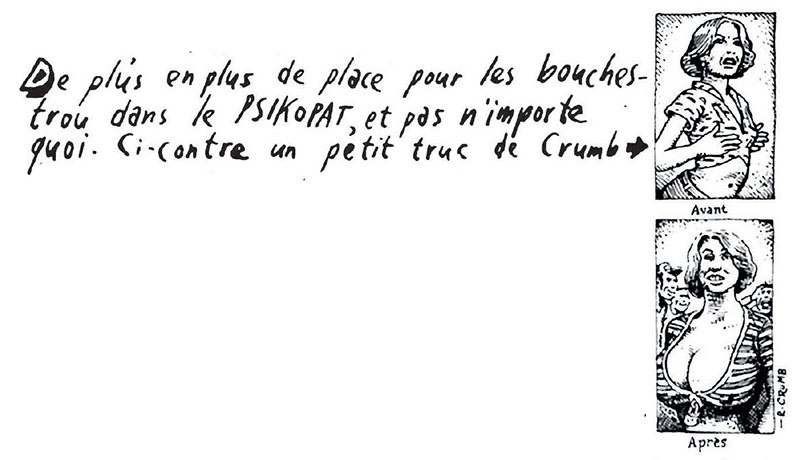 De plus en plus de place pour les bouches-
trou dans le PSIKOPAT, et pas n'importe
quoi. Ci-contre un petit truc de Crumb→
Avant
Après
-R. CRUMB